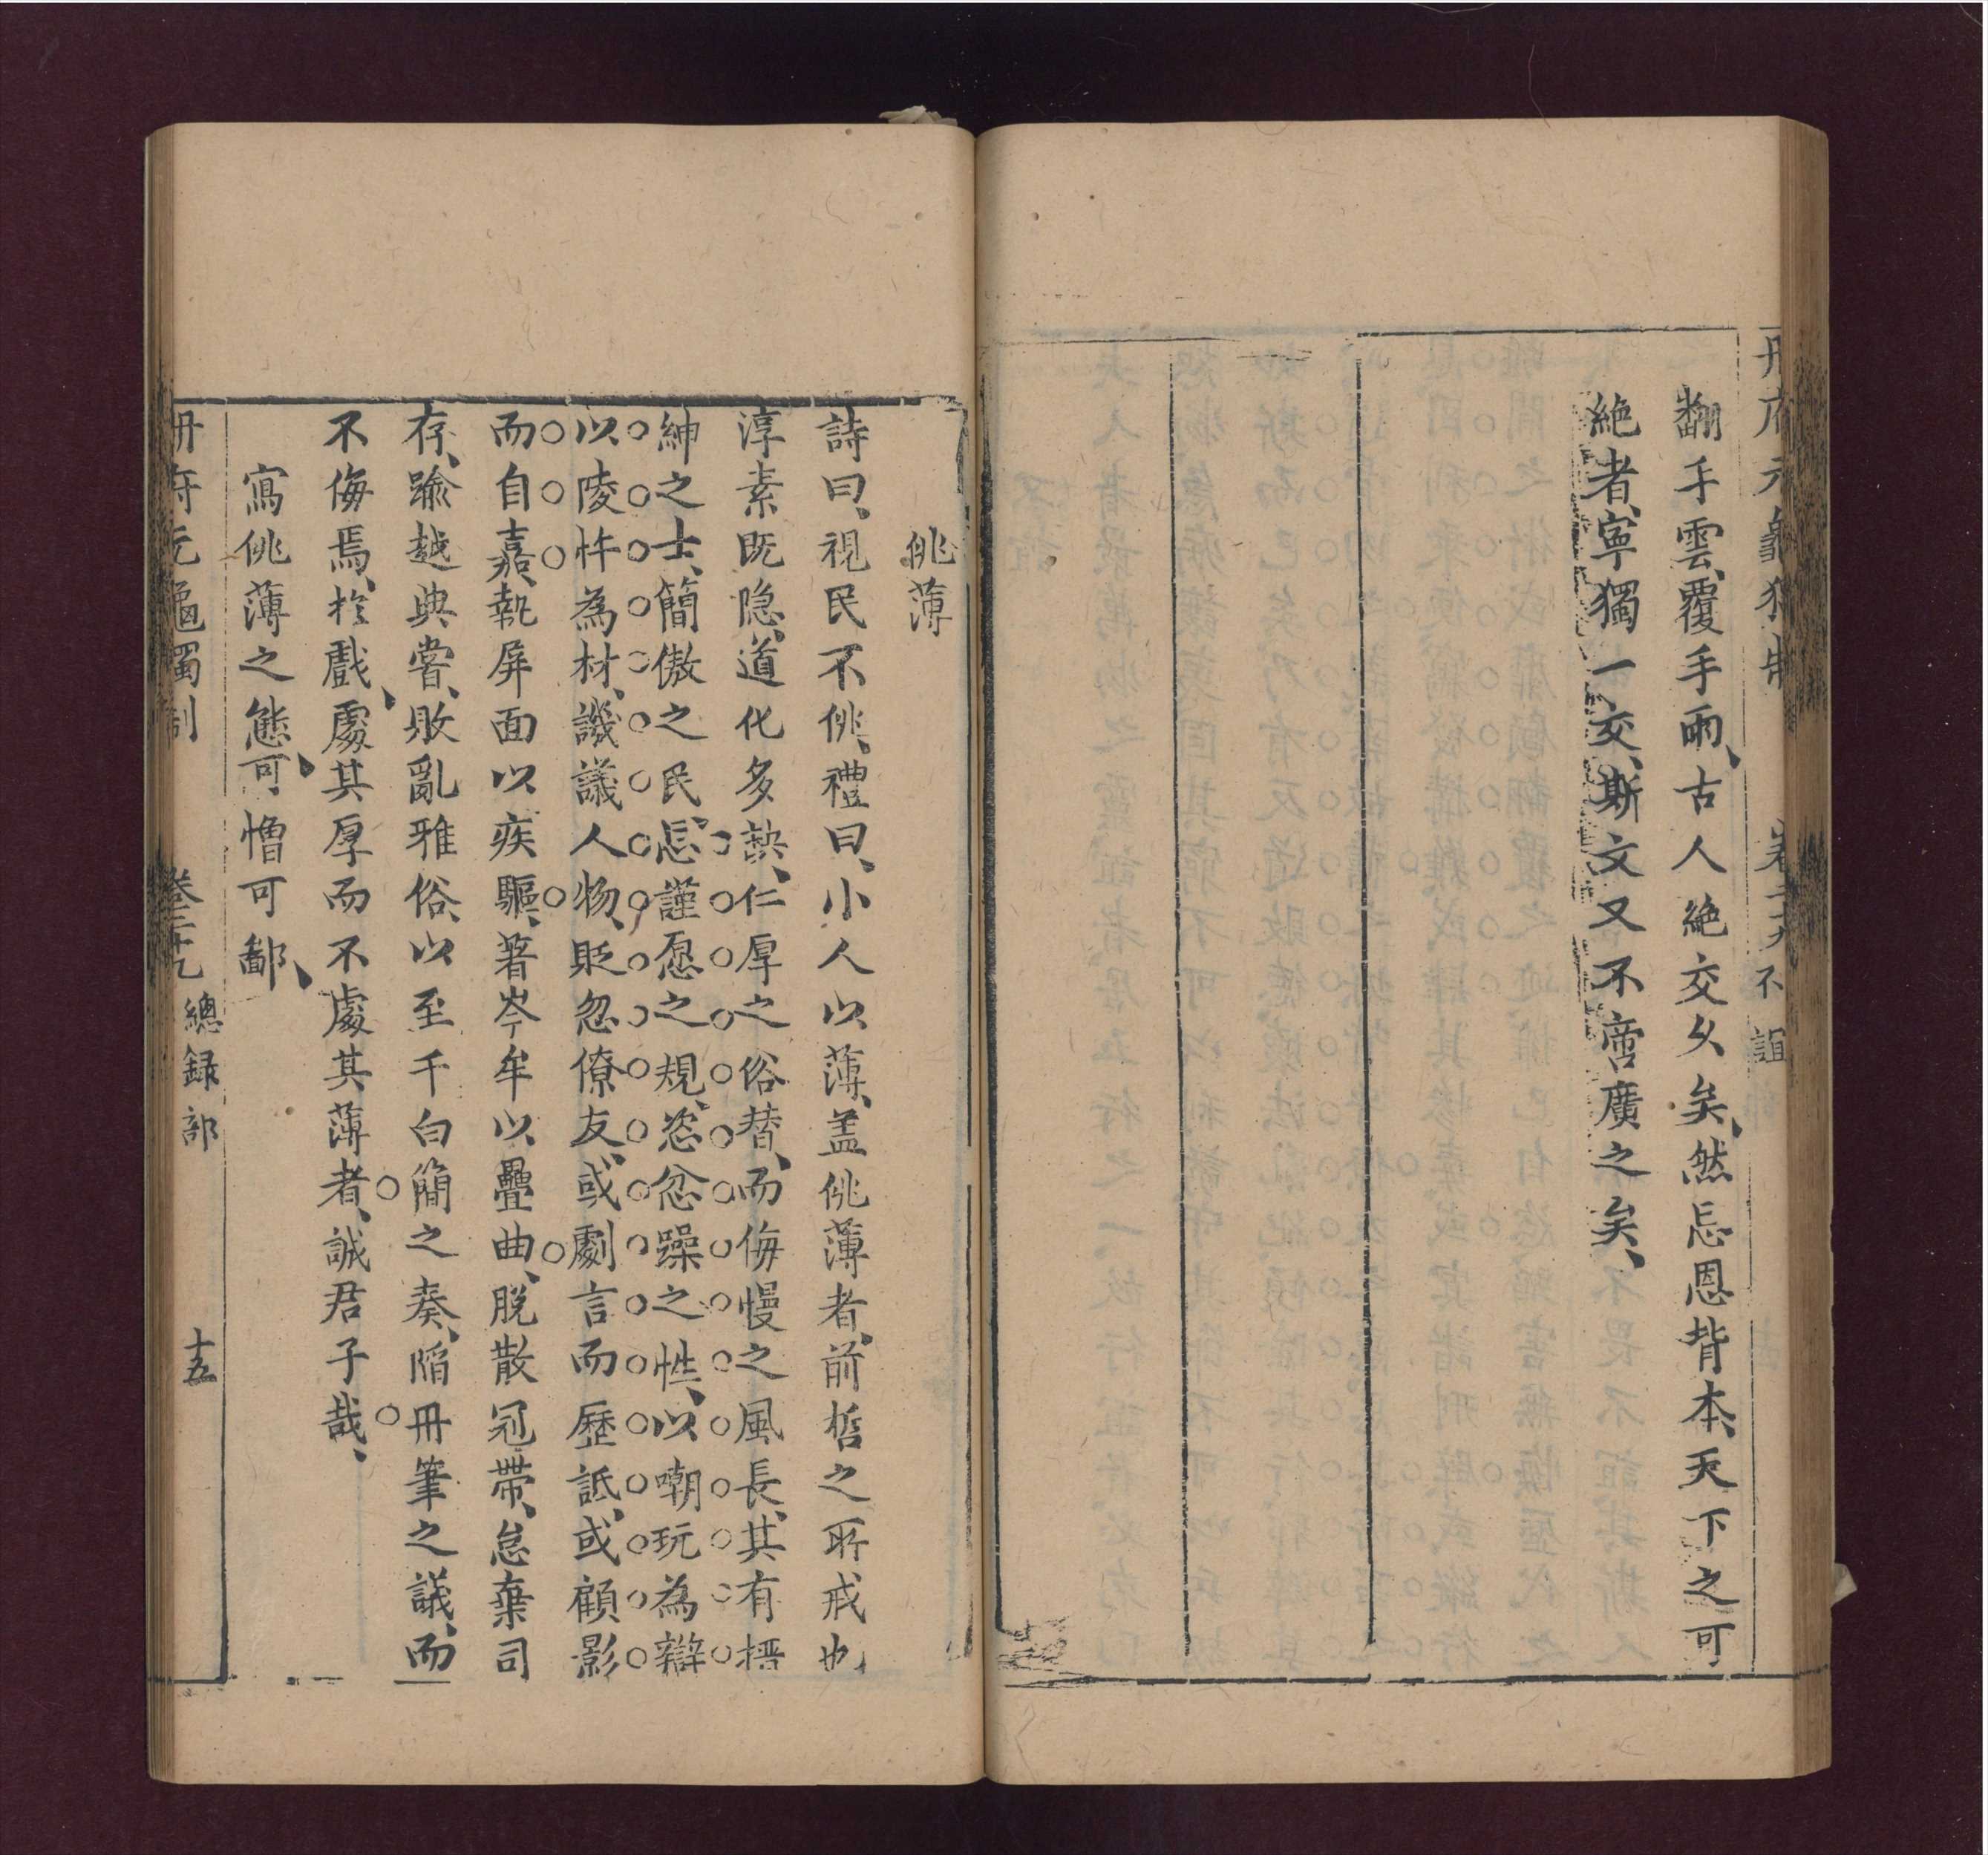 冊府元龜獨制 卷二十九 不誼
翻手雲、覆手雨、古人絶交久矣、然忘恩背本、天下之可
絶者、寧獨一交、斯文又不啻廣之矣、
佻薄
詩曰、視民不佻、禮曰、小人以薄、盖佻薄者、前哲之所戒也
淳素既隐、道化多缺、仁厚之俗替、而侮慢之風長、其有搢
紳之士、簡傲之民、忘謹愿之規、恣忿躁之性、以嘲玩為辯
以陵忤為材、譏議人物、貶忽僚友、或劇言而歷詆、或顧影
而自嘉、執屏面以疾驅、著岑牟以疊曲、脱散冠帶、怠棄司
存、踰越典嘗、敗亂雅俗、以至千白簡之奏、陷冊筆之議、而
不侮焉、於戲、處其厚而不處其薄者、誠君子哉、
寫佻薄之態、可憎可鄙、
冊府元龜獨制 卷二十九 總録部 十五